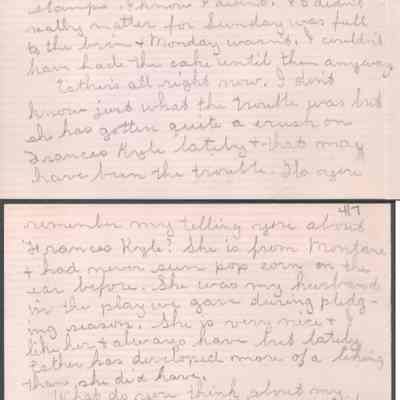 stamps. I know I didn't. It didn't
really matter for Sunday was full
to the brim & Monday wasn't. I couldn't
have had the cake until then anyway
Esther's all right now. I don't
know just what the trouble was but
she has gotten quite a crush on
Frances Kyle lately & that may
have been the trouble. Do you
417
remember my telling you about
Frances Kyle? She is from Montana
& had never seen pop corn on the
ear before. She was my husband
in the play we gave during pledg-
ing season. She is very nice & I
like her & always have but lately
Esther has developed more of a liking
than she did have.
What do you think about my